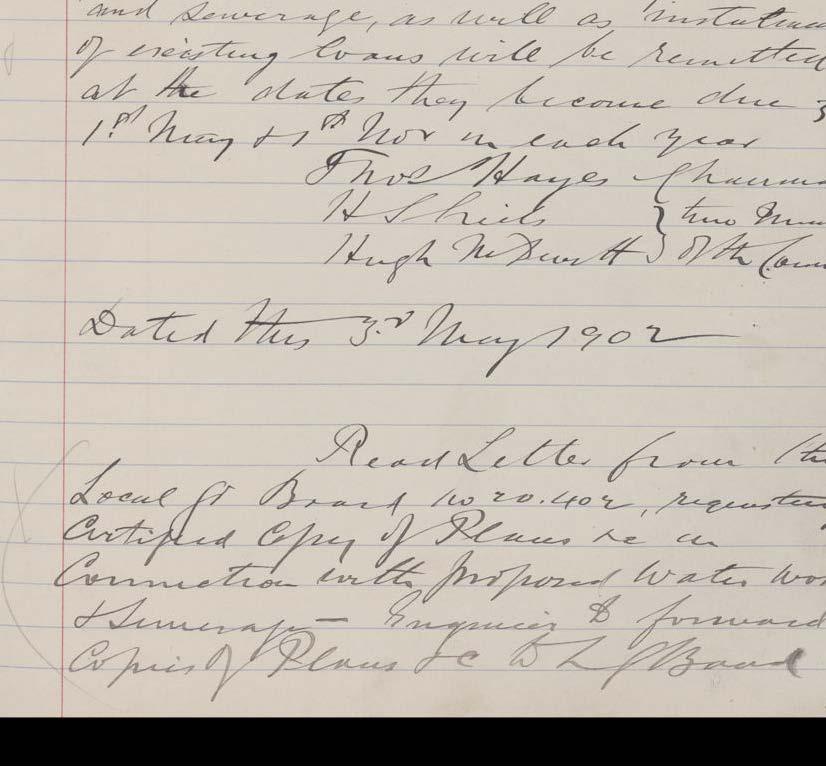 and Sewerage, as will as instalmen
of existing loans will be remitted
at the dates they become due
1st May & 1st Nov in each year
Thos Hayes Chairma
H Shiels } two Mem
Hugh McDevitt } of the Coun
Dated this 3rd May 1902
Read Letter from the
Local Gt Board No 20.402, requestin
Certified Copy of Plans &c in
Connection with proposed Water Wor
& Sewerage — Engineer to forward
Copies of Plans &c to L G Board